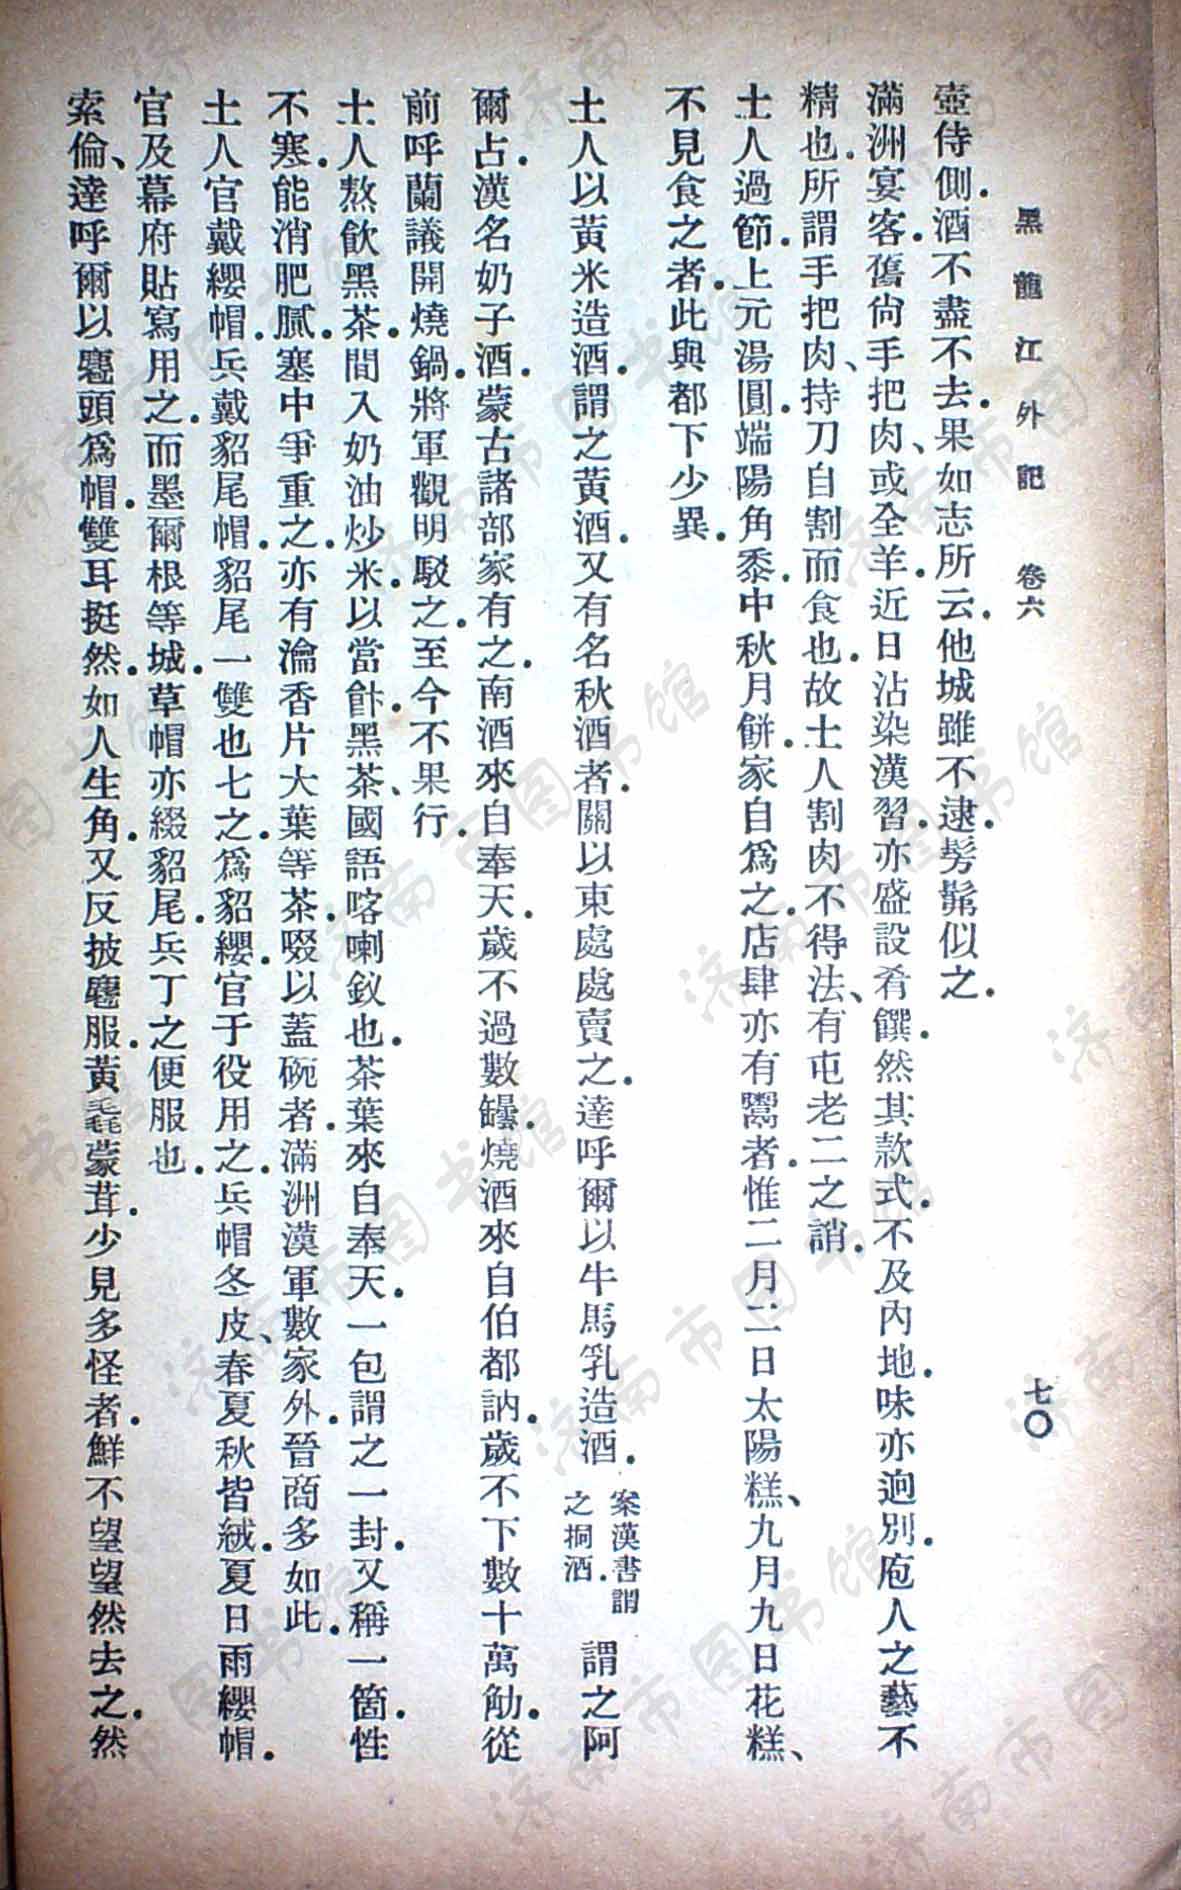 黑龍江外記　卷六　七〇
壺侍側．酒不盡不去．果如志所云．他城雖不逮．髣髴似之．
滿洲宴客．舊尙手把肉、或全羊．近日沾染漢習．亦盛設肴饌．然其款式．不及內地．味亦逈別．庖人之藝不
精也．所謂手把肉、持刀自割而食也．故土人割肉不得法、有屯老二之誚．
土人過節．上元湯圓．端陽角黍．中秋月餅．家自爲之．店肆亦有鬻者．惟二月二日太陽糕、九月九日花糕、
不見食之者．此與都下少異．
土人以黃米造酒．謂之黃酒．又有名秋酒者．關以東處處賣之．達呼爾以牛馬乳造酒．案漢書謂之挏酒．謂之阿
爾占．漢名奶子酒．蒙古諸部家有之．南酒來自奉天．歲不過數罎．燒酒來自伯都訥．歲不下數十萬觔．從
前呼蘭議開燒鍋．將軍觀明駁之．至今不果行．
土人熬飲黑茶．間入奶油炒米．以當飰．黑茶、國語喀喇釵也．茶葉來自奉天．一包謂之一封．又稱一箇．性
不寒．能消肥膩．塞中爭重之．亦有瀹香片大葉等茶．啜以蓋碗者．滿洲漢軍數家外．晉商多如此．
土人官戴纓帽．兵戴貂尾帽．貂尾一雙也七之．爲貂纓．官于役用之．兵帽冬皮、春夏秋皆絨．夏日雨纓帽．
官及幕府貼寫用之．而墨爾根等城．草帽亦綴貂尾．兵丁之便服也．
索倫、達呼爾以麅頭爲帽．雙耳挺然．如人生角．又反披麅服．黃毳蒙茸．少見多怪者．鮮不望望然去之．然